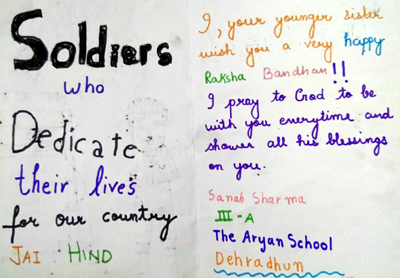 Soldiers
who
Dedicate
their lives
for our country
JAI HIND
I, your younger sister
wish you a very happy
Raksha Bandhan!!
I pray to God to be
with you everytime and
shower all his blessings
on you.
Sanah Sharma
III - A
The Aryan School
Dehradhun